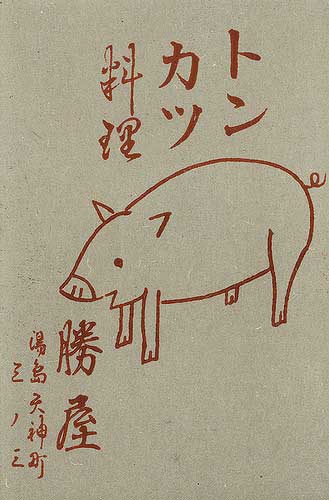 トン
カツ
料理
勝屋
湯島天神町
三ノ三